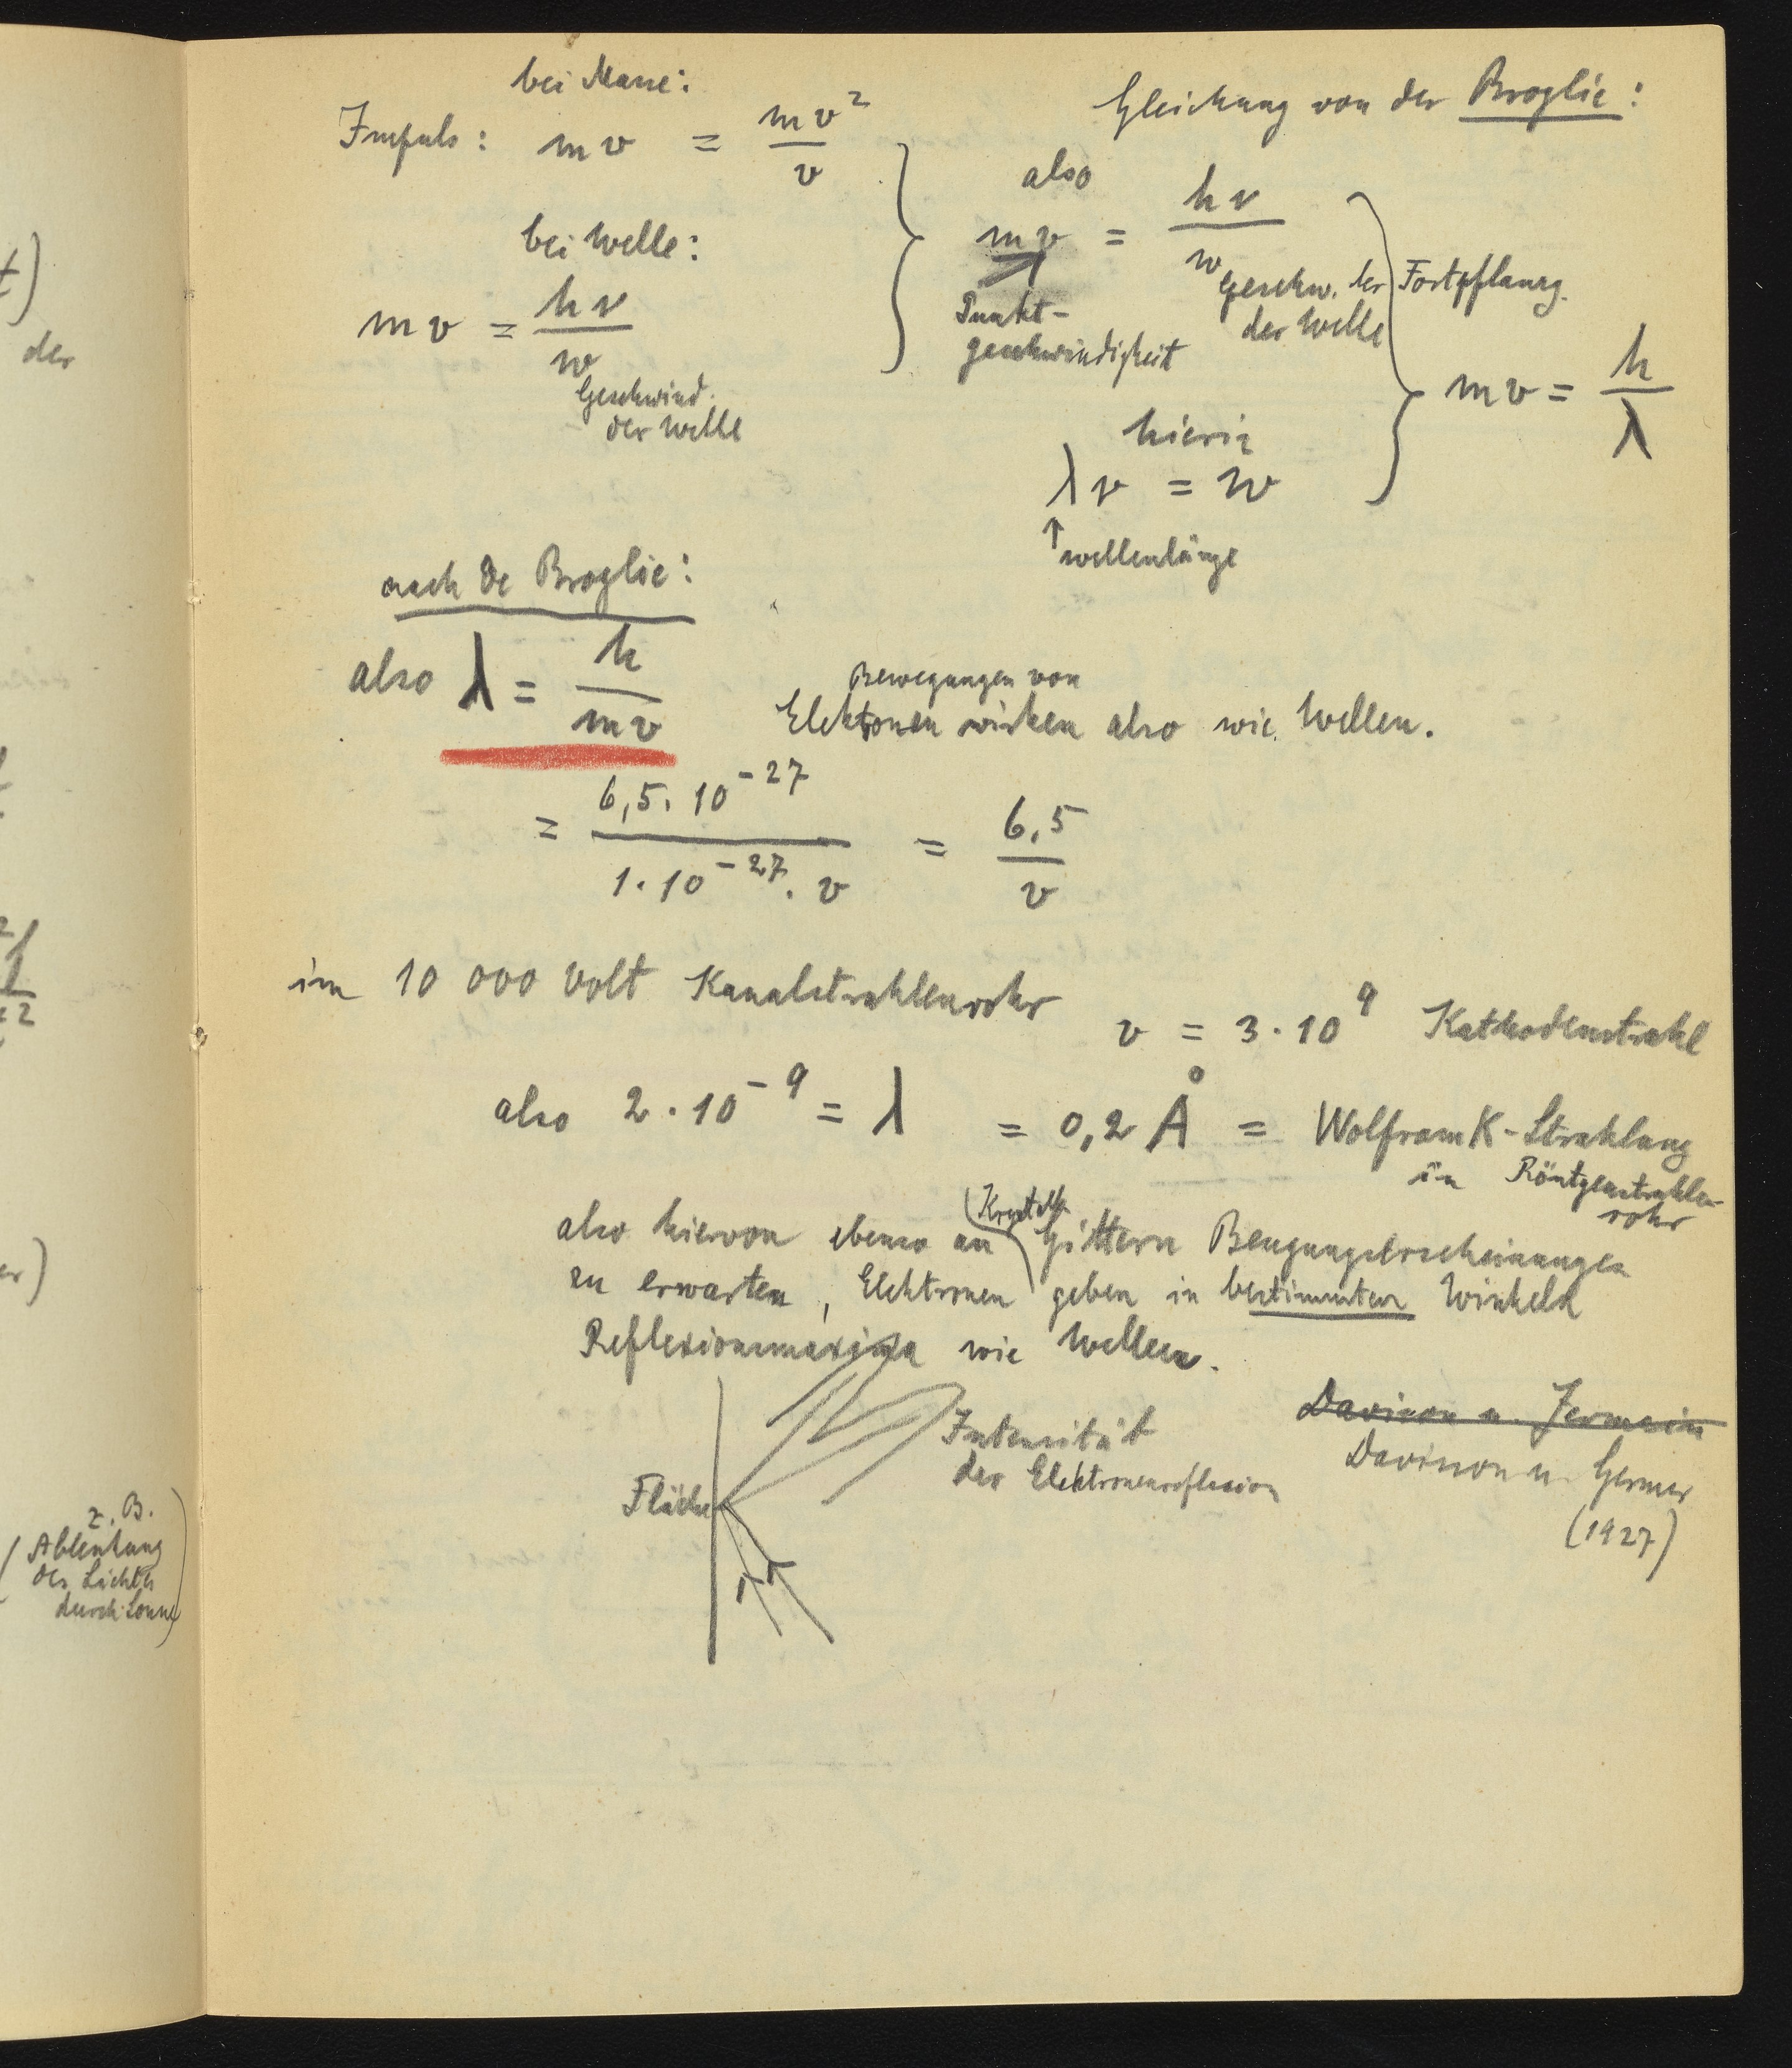 bei Masse:
Impuls: mv = mv²/v
bei Welle:
mv = hν/w
Geschwind.
der Welle
Gleichung von der Broglie:
also
mv = hν/w
Punkt-
geschwindigkeit
Geschw. der Fortpflanzg.
der Welle
hierin
λν = w
↑
Wellenlänge
mv = h/λ
nach de Broglie:
also λ = h/mv
Bewegungen von
Elektronen wirken also wie Wellen.
= 6,5 · 10⁻²⁷ / 1 · 10⁻²⁷ · v = 6,5/v
im 10 000 Volt Kanalstrahlenrohr v = 3 · 10⁹ Kathodenstrahl
also 2 · 10⁻⁹ = λ = 0,2 Å = Wolfram K-Strahlung
in Röntgenstrahlen-
rohr
also hiervon ebenso an (Krystall) Gittern Beugungserscheinungen
zu erwarten, Elektronen geben in bestimmten Winkeln
Reflexionsmaxima wie Wellen.
Fläche
Intensität
der Elektronenreflexion
Davison u. Jermain
Davisson u. Germer
(1927)
t)
der
er)
z. B.
(Ablenkung
des Lichts
durch Sonne)